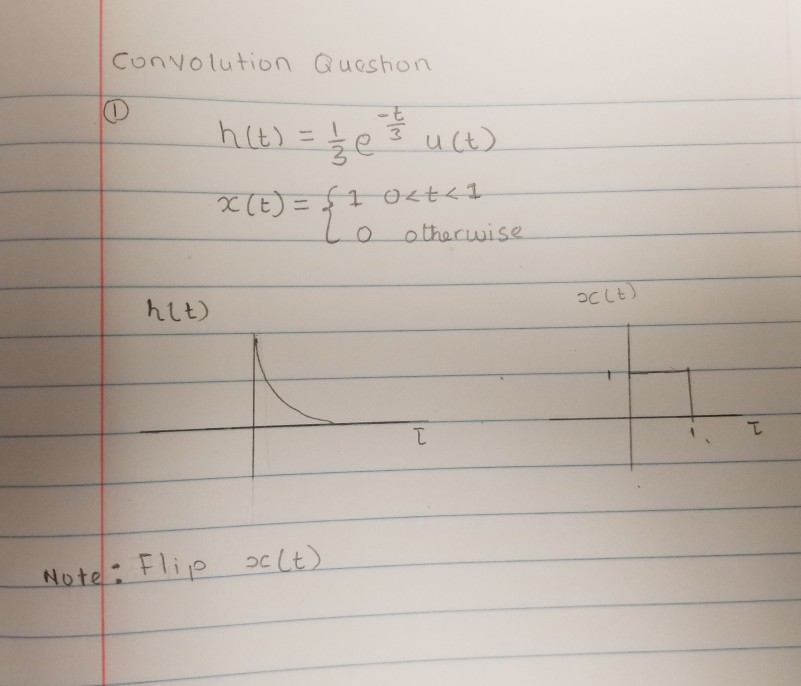 Convolution Question
①
h(t) = 1/3 e^(-t/3) u(t)
x(t) = { 1 0<t<1
0 otherwise
h(t) x(t)
1
τ 1 τ
Note: Flip x(t)